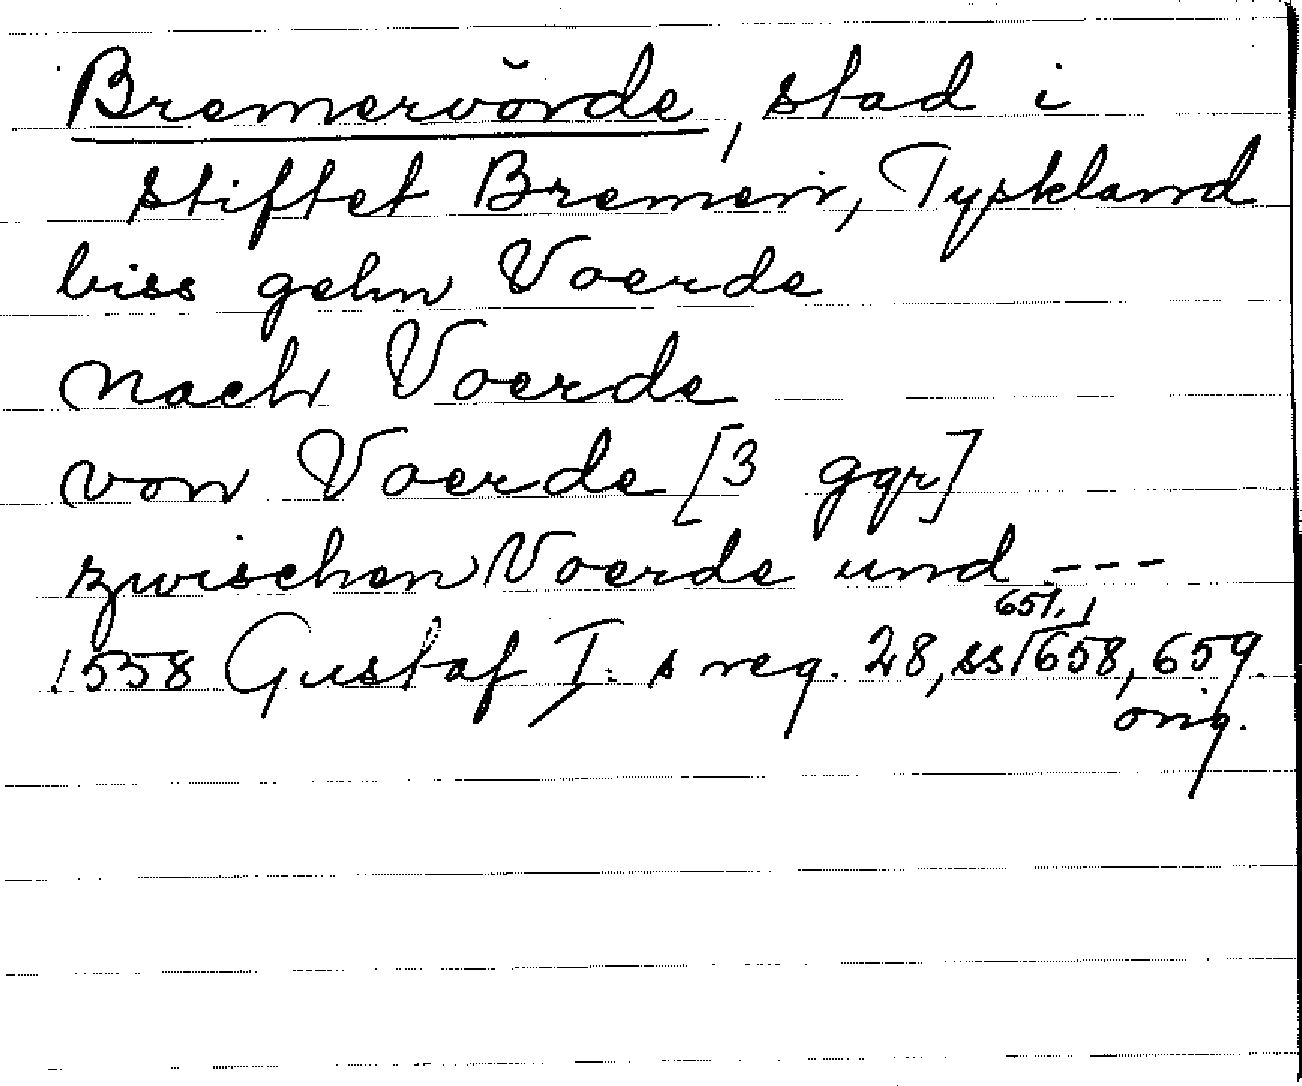 Bremervörde, stad i
stiftet Bremen, Tyskland
biss gehn Voerde
nach Voerde
von Voerde [3 ggr]
zwischen Voerde und ---
1558 Gustaf I:s reg. 28, ss 657, 658, 659.
orig.